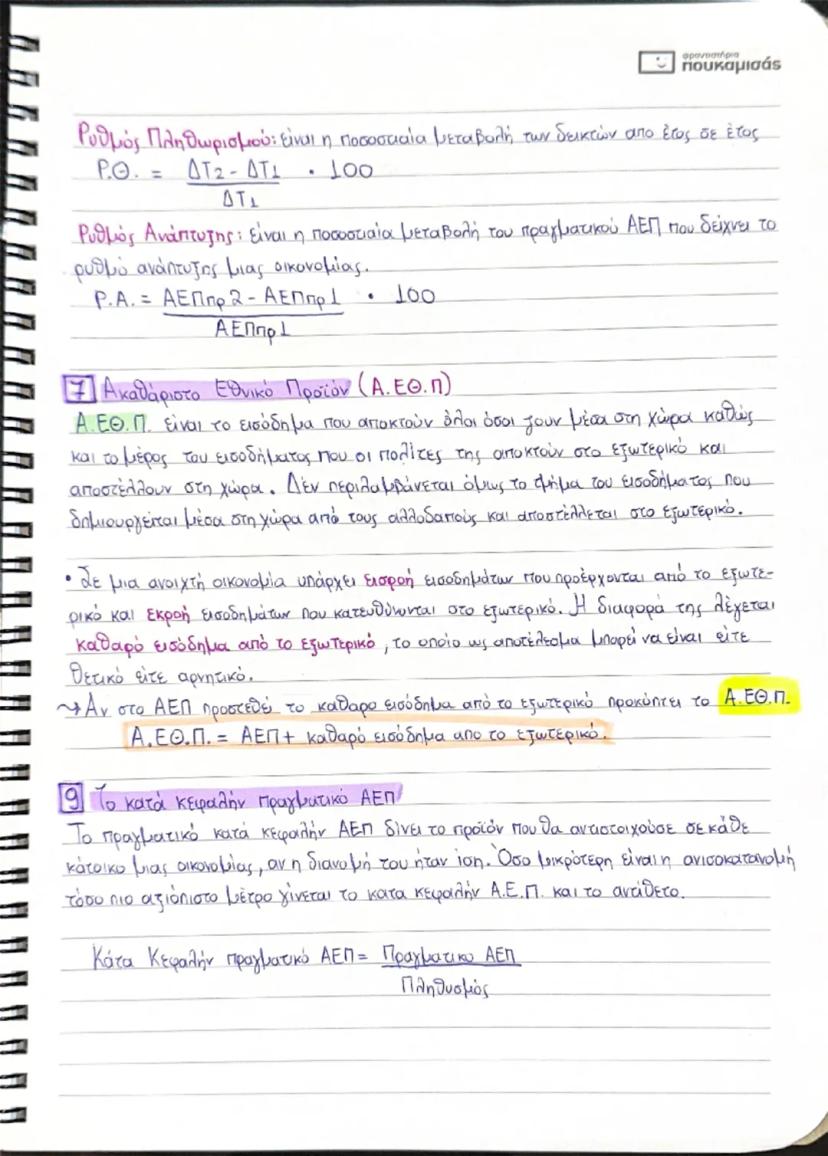 φροντιστήρια
πουκαμισάς
Ρυθμός Πληθωρισμού: είναι η ποσοστιαία μεταβολή των δεικτών απο έτος σε έτος
Ρ.Θ. = ΔΤ2 - ΔΤ1 · 100
ΔΤ1
Ρυθμός Ανάπτυξης: είναι η ποσοστιαία μεταβολή του πραγματικού ΑΕΠ που δείχνει το
ρυθμό ανάπτυξης μιας οικονομίας.
Ρ.Α. = ΑΕΠπρ2 - ΑΕΠπρ1 · 100
ΑΕΠπρ1
7 Ακαθάριστο Εθνικό Προϊόν (Α.ΕΘ.Π)
Α.ΕΘ.Π. είναι το εισόδημα που αποκτούν όλοι όσοι ζουν μέσα στη χώρα καθώς
και το μέρος του εισοδήματος που οι πολίτες της αποκτούν στο εξωτερικό και
αποστέλλουν στη χώρα. Δεν περιλαμβάνεται όμως το τμήμα του εισοδήματος που
δημιουργείται μέσα στη χώρα από τους αλλοδαπούς και αποστέλλεται στο εξωτερικό.
• Σε μια ανοιχτή οικονομία υπάρχει εισροή εισοδημάτων που προέρχονται από το εξωτε-
ρικό και εκροή εισοδημάτων που κατευθύνονται στο εξωτερικό. Η διαφορά της λέγεται
καθαρό εισόδημα από το εξωτερικό, το οποίο ως αποτέλεσμα μπορεί να είναι είτε
θετικό είτε αρνητικό.
↝ Αν στο ΑΕΠ προστεθεί το καθαρο εισόδημα από το εξωτερικό προκύπτει το Α.ΕΘ.Π.
Α.ΕΘ.Π. = ΑΕΠ + καθαρό εισόδημα απο το εξωτερικό.
9 Το κατά κεφαλήν πραγματικό ΑΕΠ
Το πραγματικό κατά κεφαλήν ΑΕΠ δίνει το προϊόν που θα αντιστοιχούσε σε κάθε
κάτοικο μιας οικονομίας, αν η διανομή του ήταν ίση. Όσο μικρότερη είναι η ανισοκατανομή
τόσο πιο αξιόπιστο μέτρο γίνεται το κατα κεφαλήν Α.Ε.Π. και το αντίθετο.
Κάτα Κεφαλήν πραγματικό ΑΕΠ = Πραγματικο ΑΕΠ
Πληθυσμός